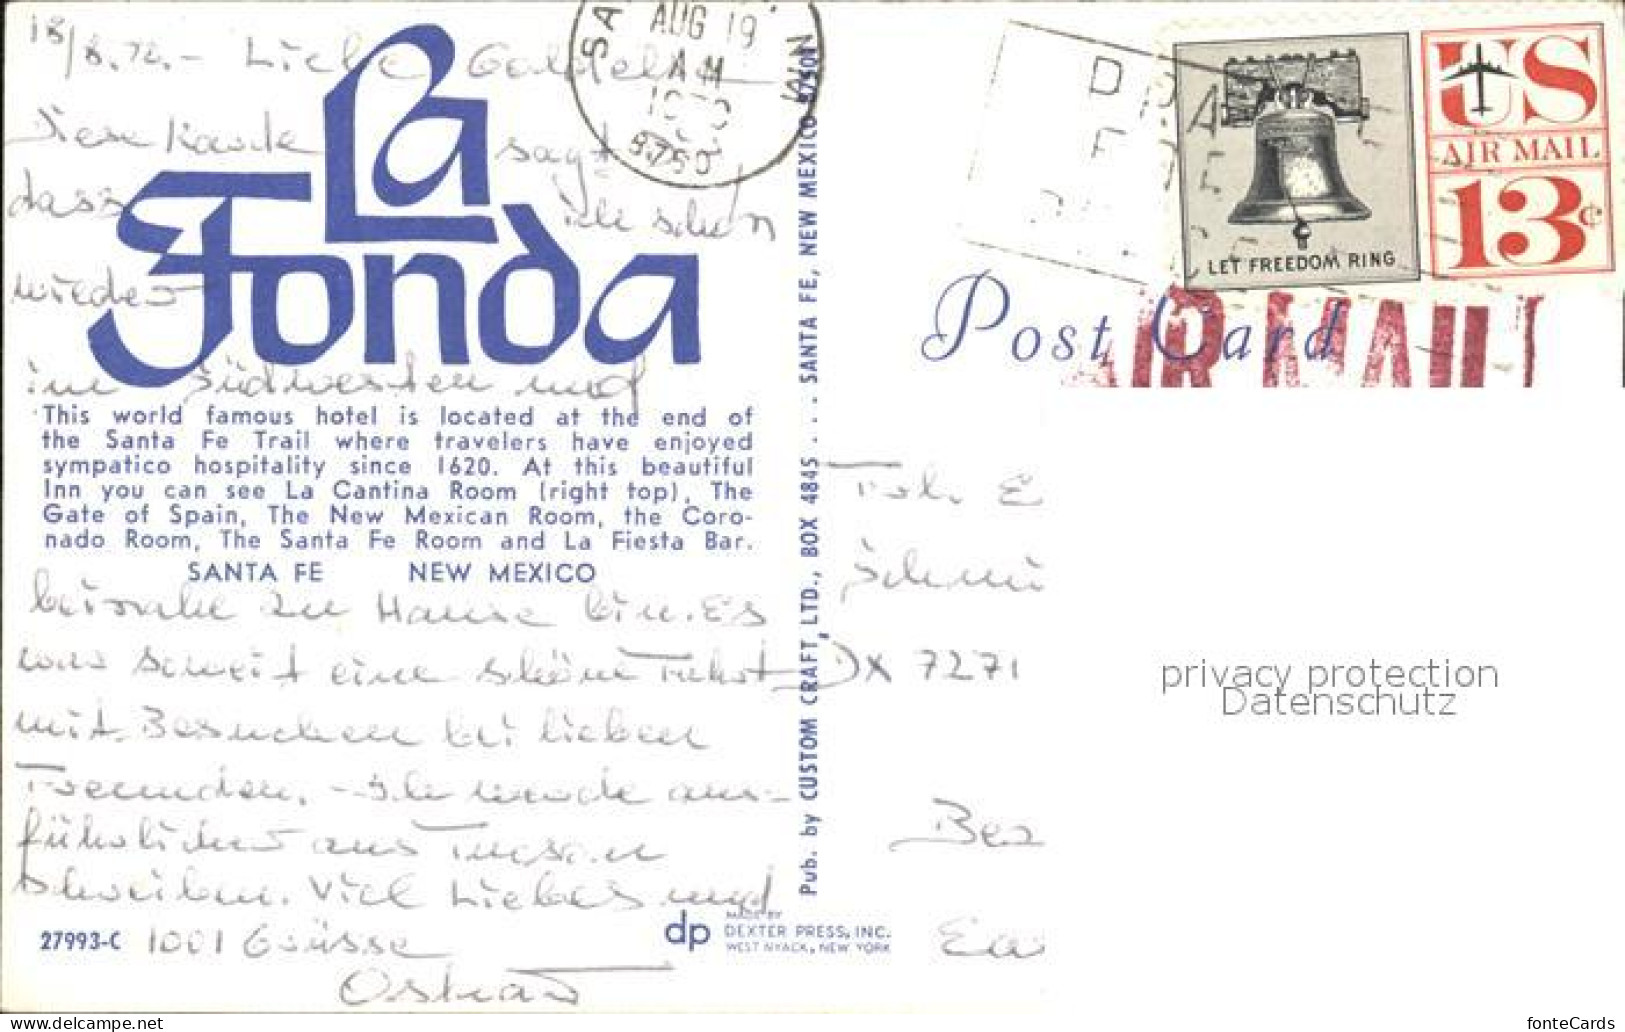 18/8.72.- Liebe
Diese Karte sagt
dass ich schon
wieder
im Südwesten und
La
Fonda
This world famous hotel is located at the end of
the Santa Fe Trail where travelers have enjoyed
sympatico hospitality since 1620. At this beautiful
Inn you can see La Cantina Room (right top), The
Gate of Spain, The New Mexican Room, the Coro-
nado Room, The Santa Fe Room and La Fiesta Bar.
SANTA FE NEW MEXICO
beinahe zu Hause bin. Es
war soweit eine schöne Fahrt
mit Besuchen bei lieben
Freunden. - Ich werde aus-
führlicher aus Tucson
schreiben. Viel Liebes und
27993-C 1001 Grüsse
dp MADE BY
DEXTER PRESS, INC.
WEST NYACK, NEW YORK
Pub. by CUSTOM CRAFT, LTD., BOX 4845 . . . SANTA FE, NEW MEXICO 87501
AUG 19
AM
NM
LET FREEDOM RING
US
AIR MAIL
13c
Post Card
AIR MAIL
DX 7271
privacy protection
Datenschutz
fonteCards